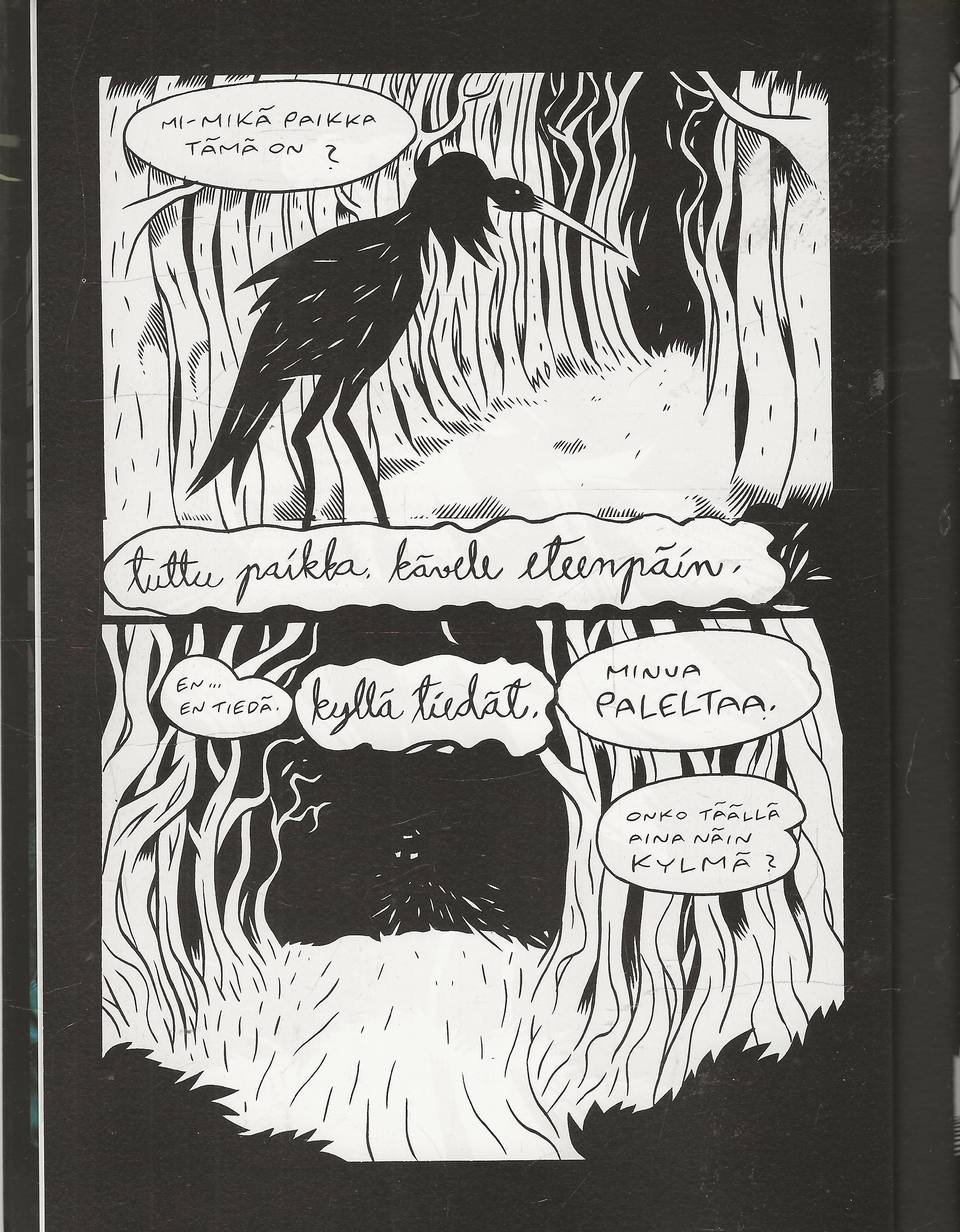 MI-MIKÄ PAIKKA
TÄMÄ ON ?
tuttu paikka. kävele eteenpäin.
EN...
EN TIEDÄ.
kyllä tiedät.
MINUA
PALELTAA.
ONKO TÄÄLLÄ
AINA NÄIN
KYLMÄ ?